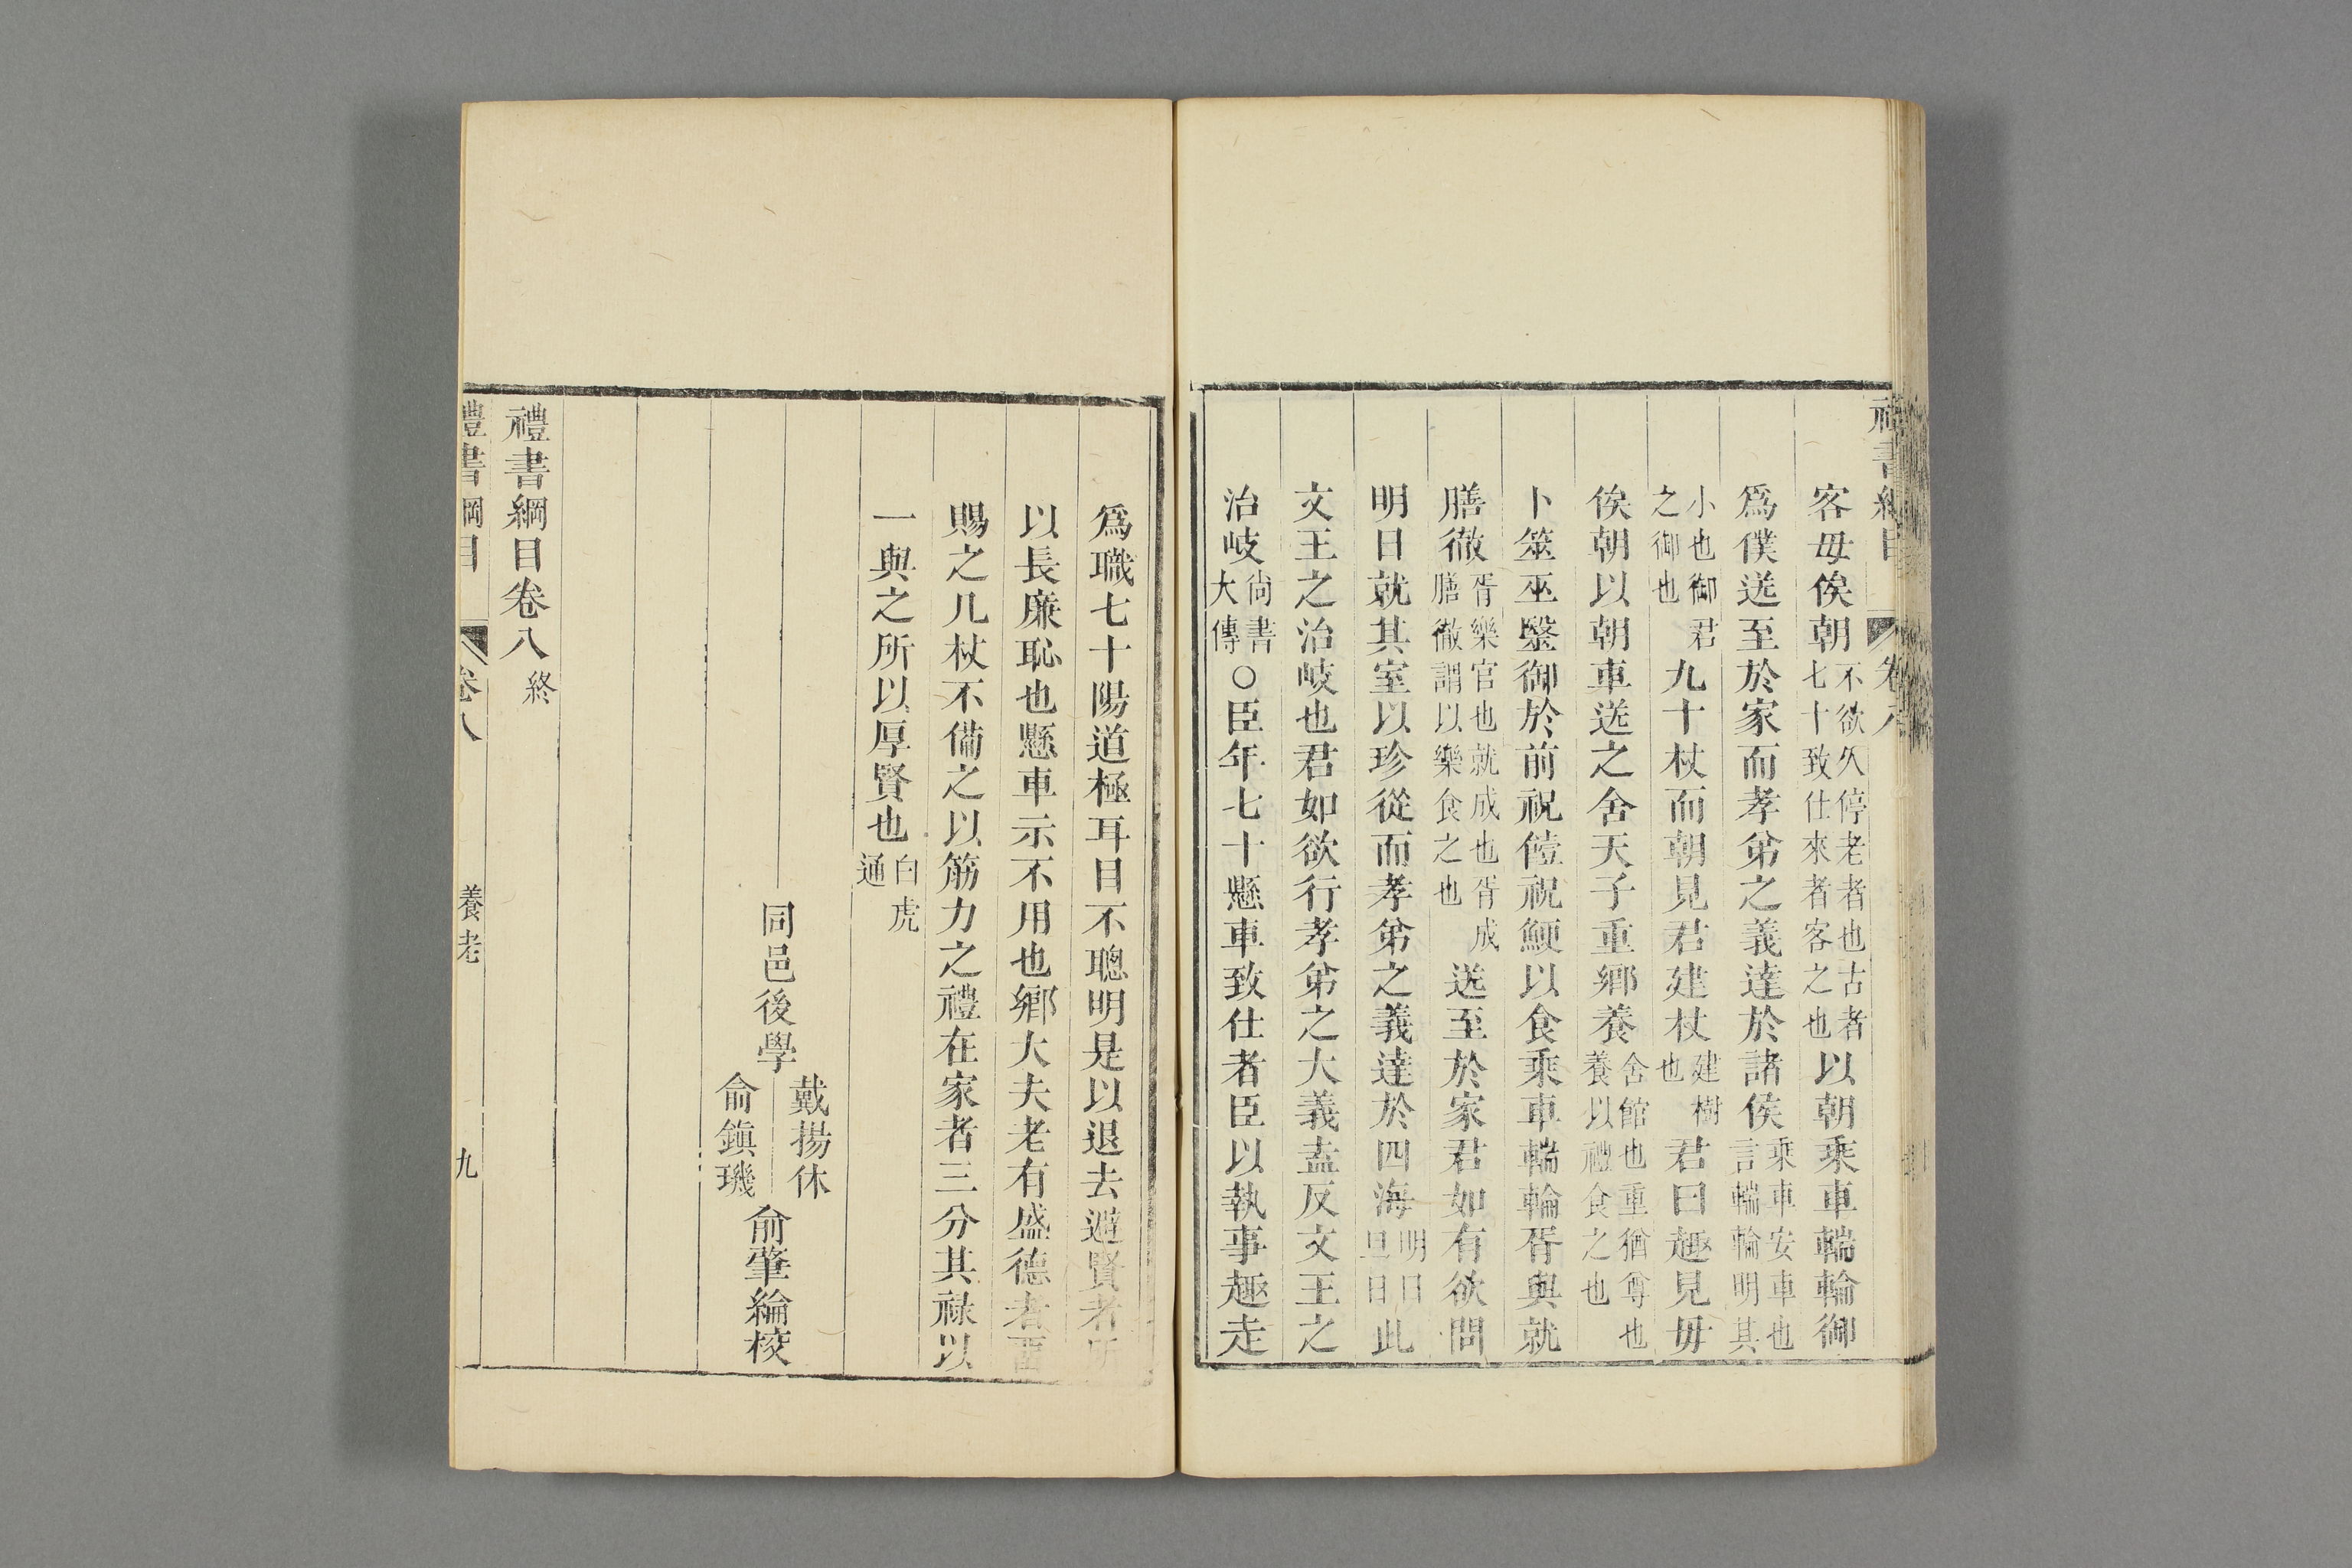 客毋俟朝不欲久停老者也古者七十致仕來者客之也以朝乘車輲輪御
爲僕送至於家而孝弟之義達於諸侯乘車安車也言輲輪明其
小也御君之御也九十杖而朝見君建杖建樹也君曰趣見毋
俟朝以朝車送之舍天子重鄉養舍館也重猶尊也養以禮食之也
卜筮巫毉御於前祝饐祝鯁以食乘車輲輪胥與就
膳徹胥樂官也就成也胥成膳徹謂以樂食之也送至於家君如有欲問
明日就其室以珍從而孝弟之義達於四海明日旦日此
文王之治岐也君如欲行孝弟之大義盍反文王之
治岐尙書大傳○臣年七十懸車致仕者臣以執事趣走
爲職七十陽道極耳目不聰明是以退去避賢者所
以長廉恥也懸車示不用也鄉大夫老有盛德者畱
賜之几杖不備之以筋力之禮在家者三分其祿以
一與之所以厚賢也白虎通
同邑後學戴揚休俞鎮璣俞肇綸校
禮書綱目卷八終
禮書綱目 卷八 養老 九